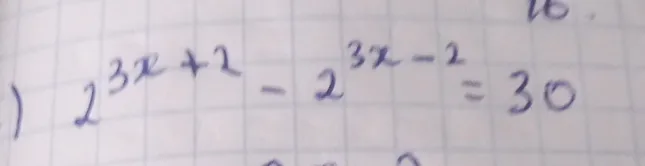 16.
) 2^{3x+2} - 2^{3x-2} = 30